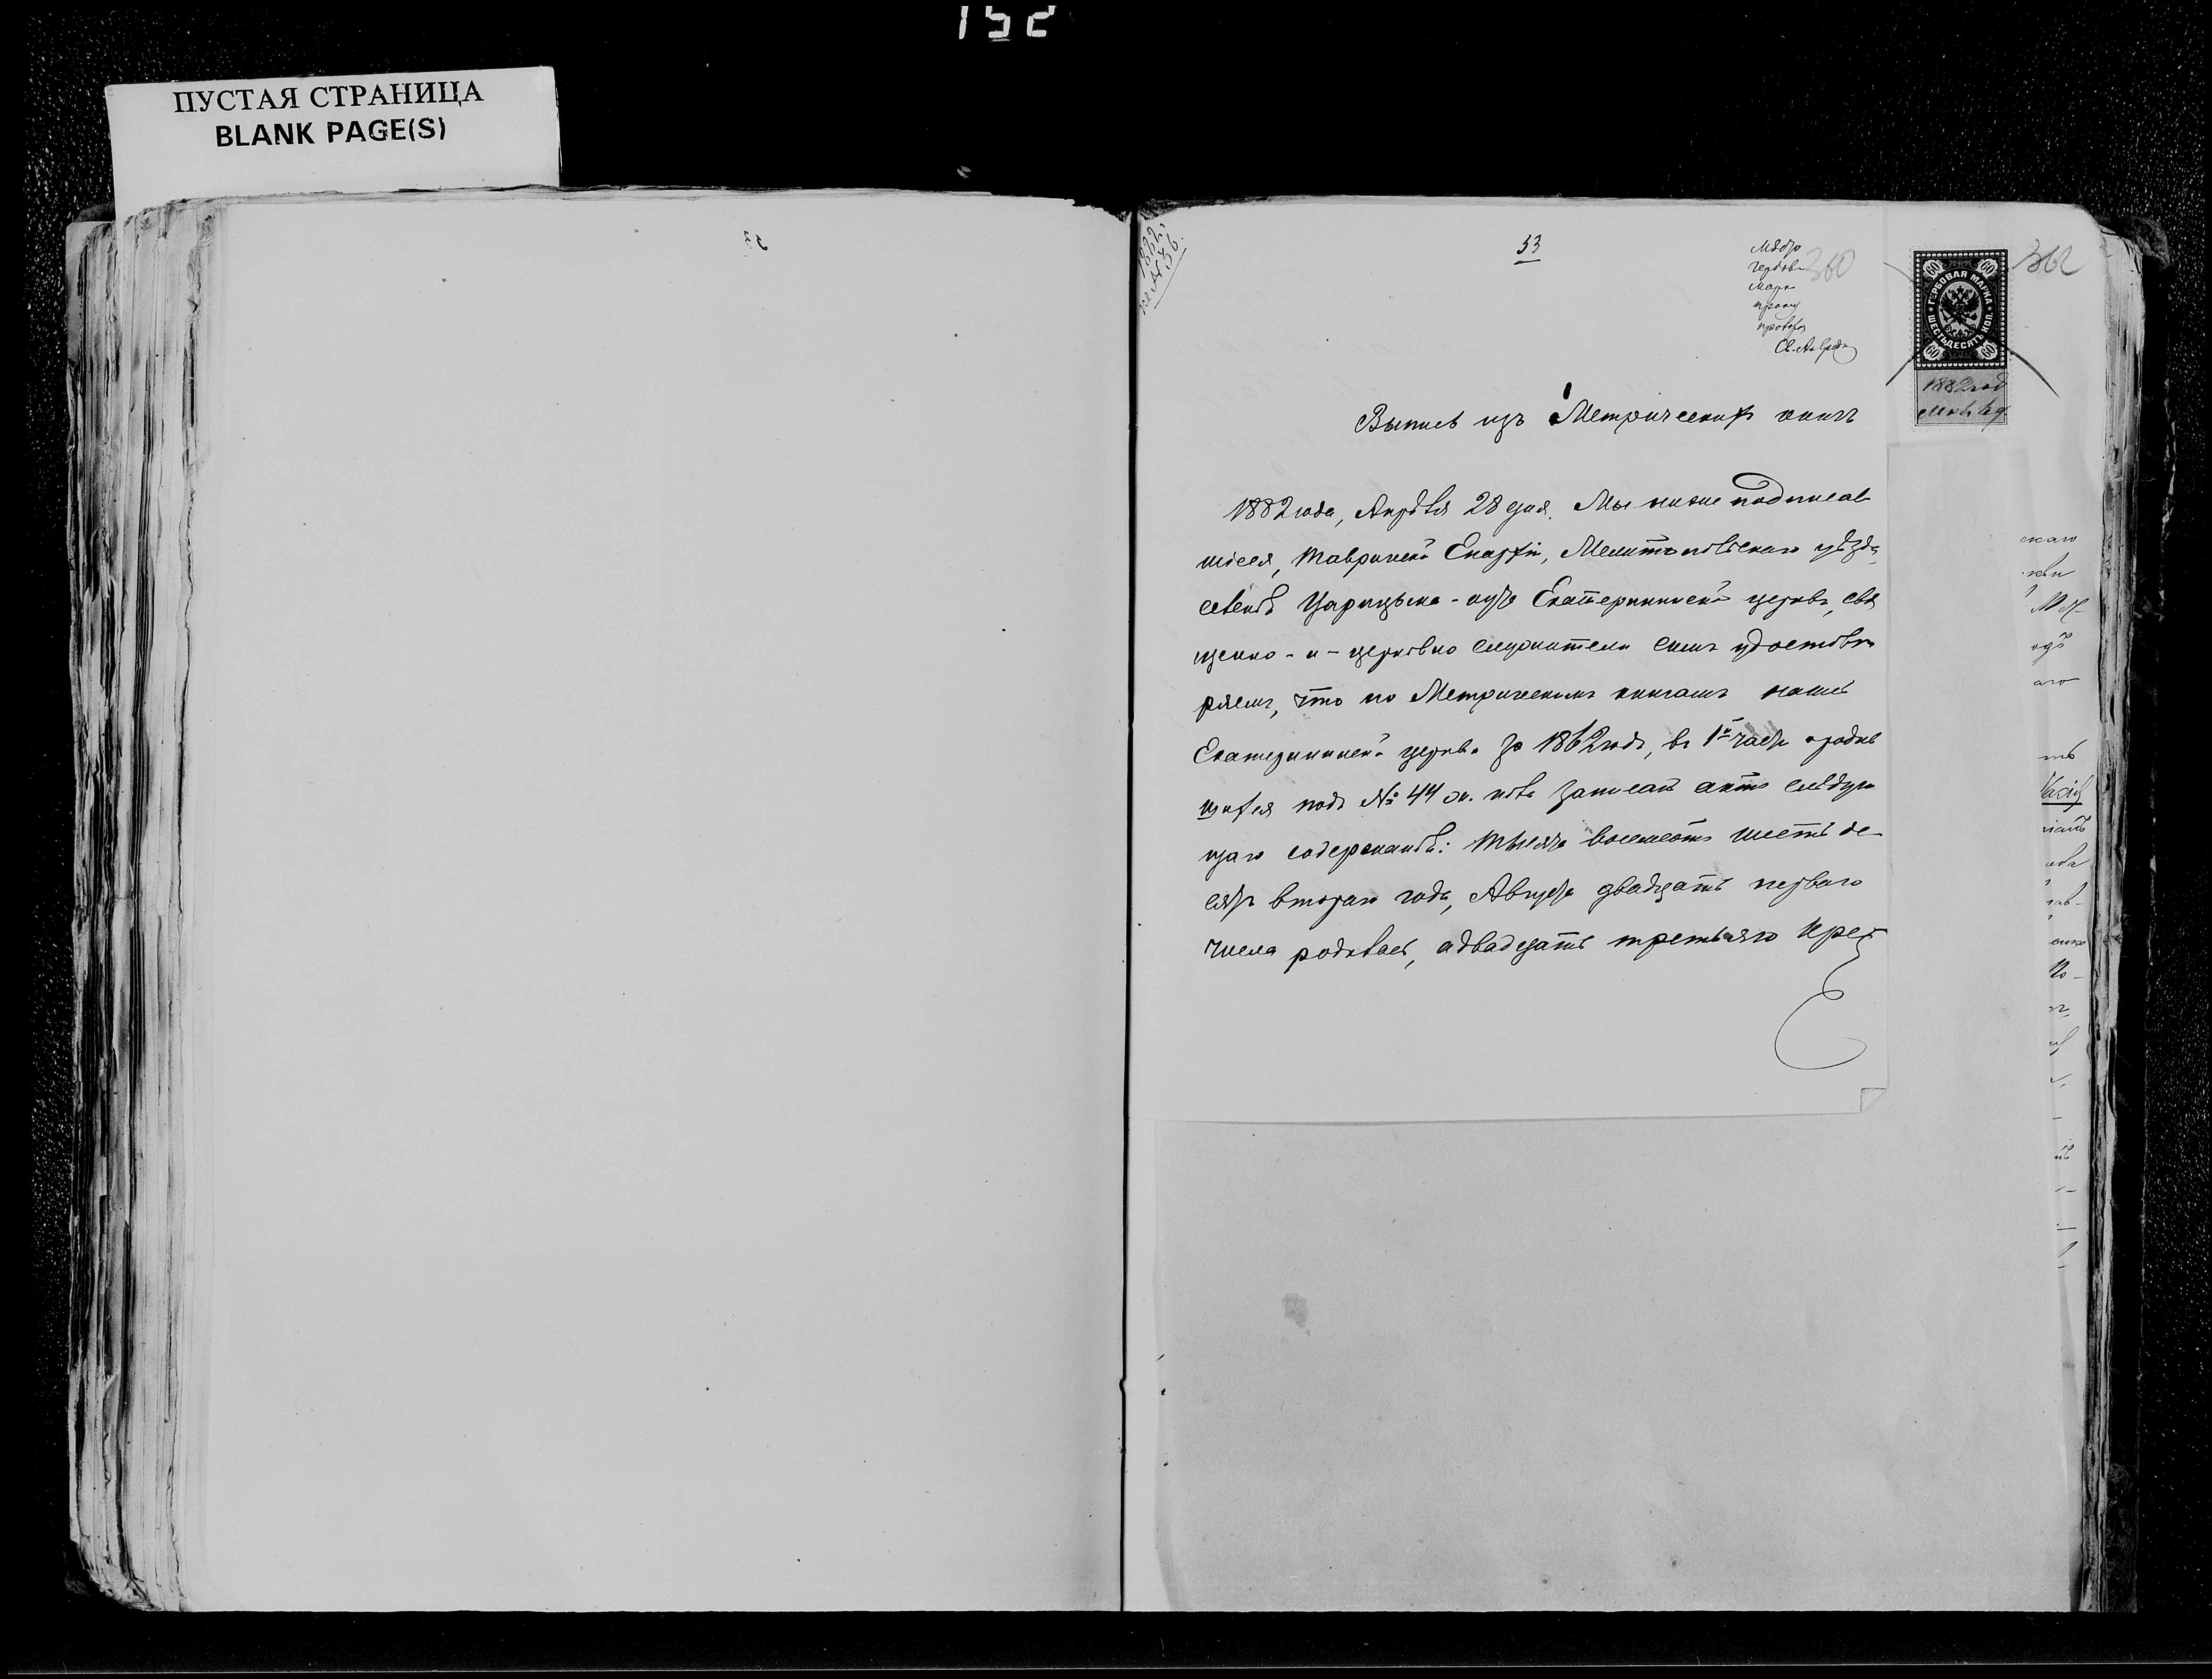 152
ПУСТАЯ СТРАНИЦА
BLANK PAGE(S)
53
1882 г.
№ 36.
53
360
362
60 60
ГЕРБОВАЯ МАРКА
ШЕСТЬДЕСЯТЪ КОП.
60 60
1882 год
Выпись изъ Метрическихъ книгъ
1882 года, Апрѣля 28 дня. Мы ниже подписав
шіеся, Таврической Епархіи, Мелитопольскаго уѣзда,
селенія Царицына-кутъ Екатерининской церкви, свя
щенно-и-церковно служители симъ удостовѣ
ряемъ, что по Метрическимъ книгамъ нашей
Екатерининской церкви за 1862 годъ, въ 1й части о родив
шихся подъ № 44 м. пола записанъ актъ слѣдую
щаго содержанія: Тысяча восемсотъ шестьде-
сятъ втораго года, Августа двадцать перваго
числа родился, а двадцать третьяго крещ
скаго
Мел-
аго
ть
Но-